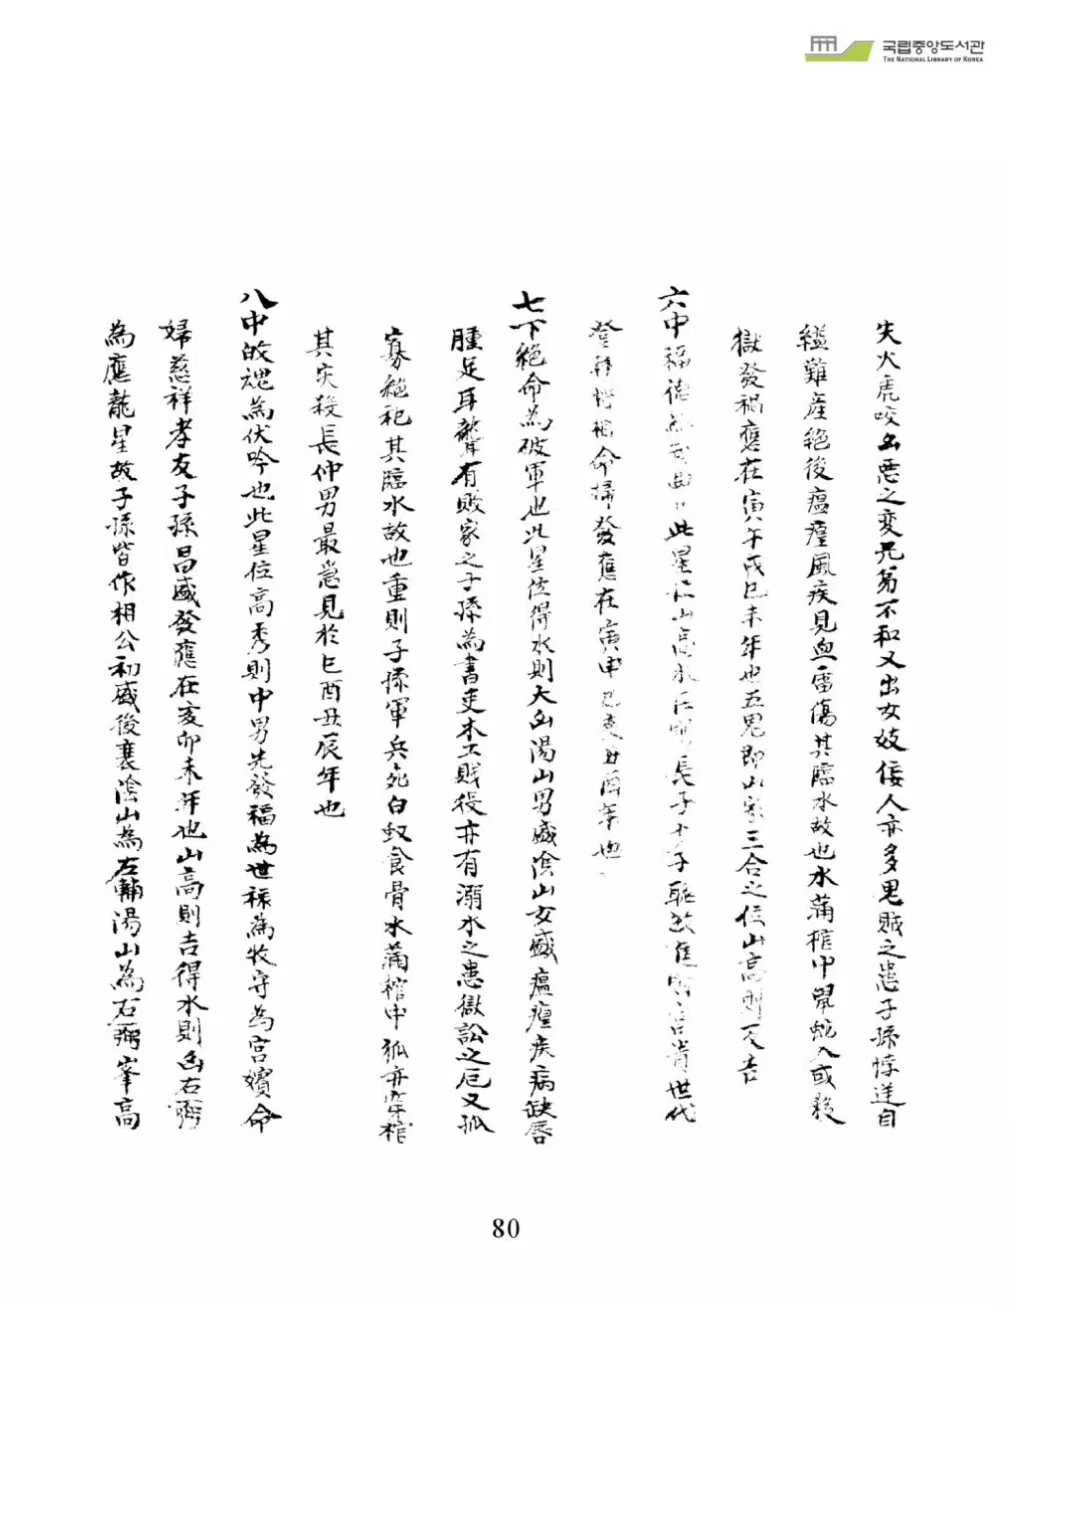 국립중앙도서관
THE NATIONAL LIBRARY OF KOREA
失火虎咬凶惡之変兄弟不和又出女妓倿人亦多鬼賊之患子孫悖逆自
縊難產絶後瘟㾮風疾見血雷傷其臨水故也水滿棺中鼠蛇入或移
獄發禍應在寅午戌巳未年也五鬼卽山家三合之位山高則大吉
六中福德為武曲也此星位山高水長子少子世代
登科命婦發應在寅申巳亥丑酉年也
七下絶命為破軍也此星位得水則大凶湯山男盛陰山女盛瘟㾮疾病缺唇
腫足耳聾有敗家之子孫為書吏木工賤役亦有溺水之患獄訟之厄又孤
寡絶祀其臨水故也重則子孫軍兵死白蚁食骨水滿棺中狐亦穿棺
其灾殺長仲男最急見於巳酉丑辰年也
八中故魂為伏吟也此星位高秀則中男先發福為世祿為牧守為宮嬪命
婦慈祥孝友子孫昌盛發應在亥卯未年也山高則吉得水則凶右弼
為應龍星故子孫皆作相公初盛後衰陰山為左輔湯山為右弼峯高
80